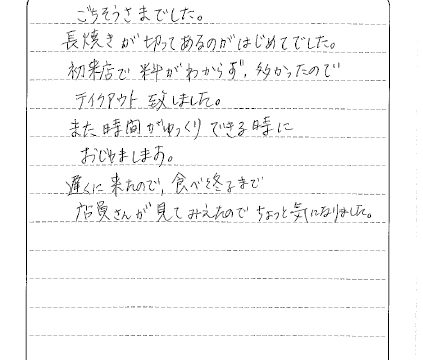 ごちそうさまでした。
長焼きが切ってあるのがはじめてでした。
初来店で料がわからず、多かったので
テイクアウト致しました。
また時間がゆっくりできる時に
おじゃまします。
遅くに来たので、食べ終るまで
店員さんが見てみえたのでちょっと気になりました。